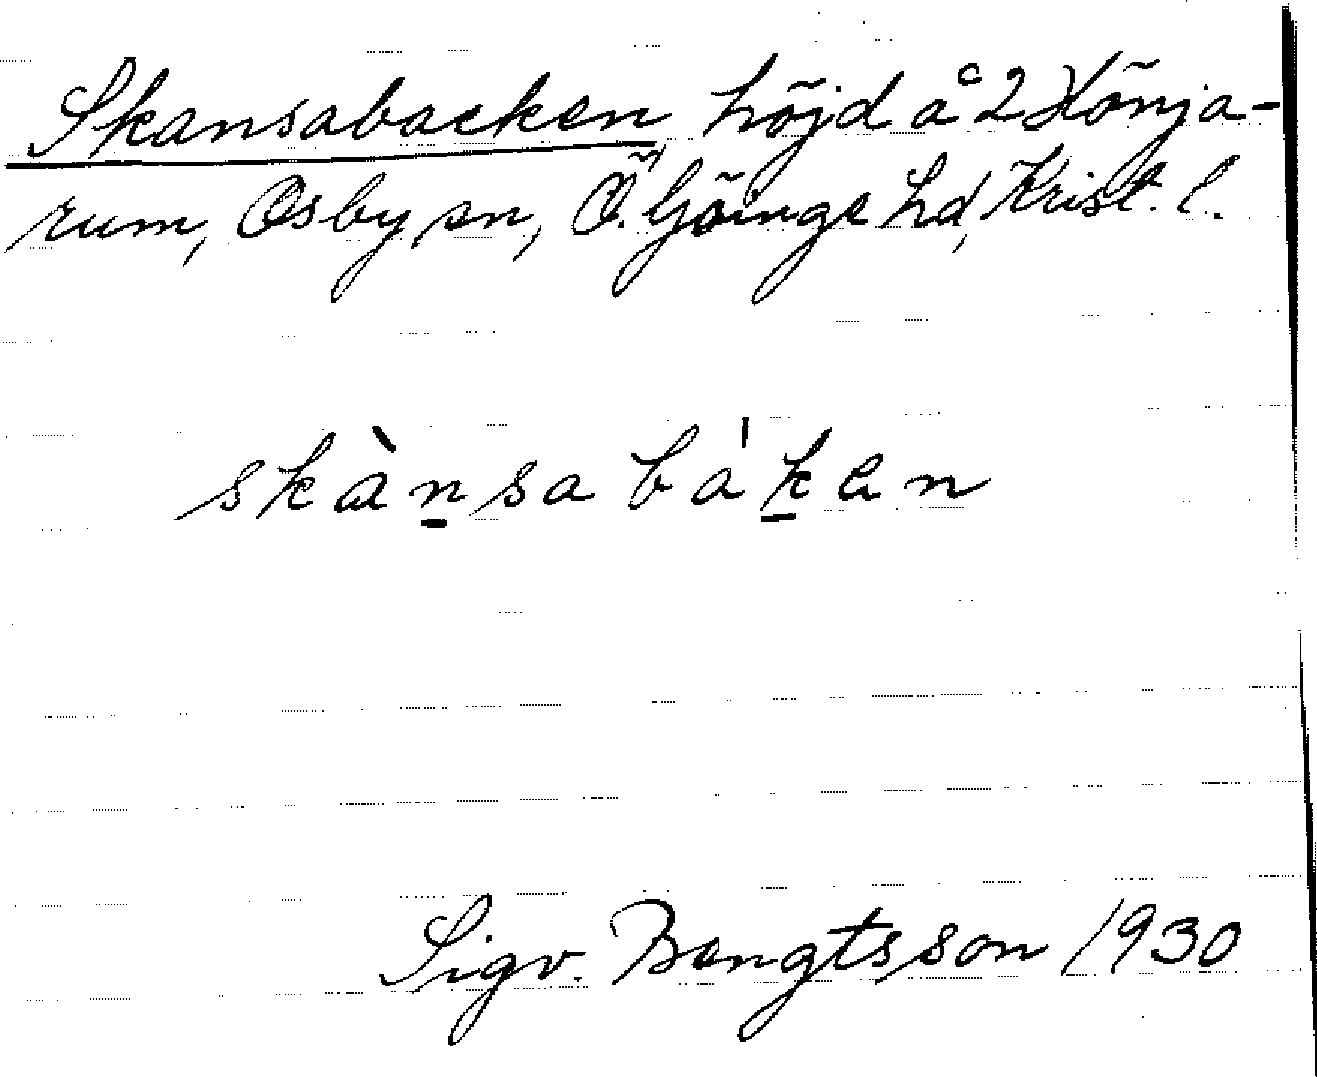 Skansabacken höjd å 2 Hönja-
rum, Osby sn, Ö. Göinge hd, Krist. l.
skànsabáken
Sigv. Bengtsson 1930